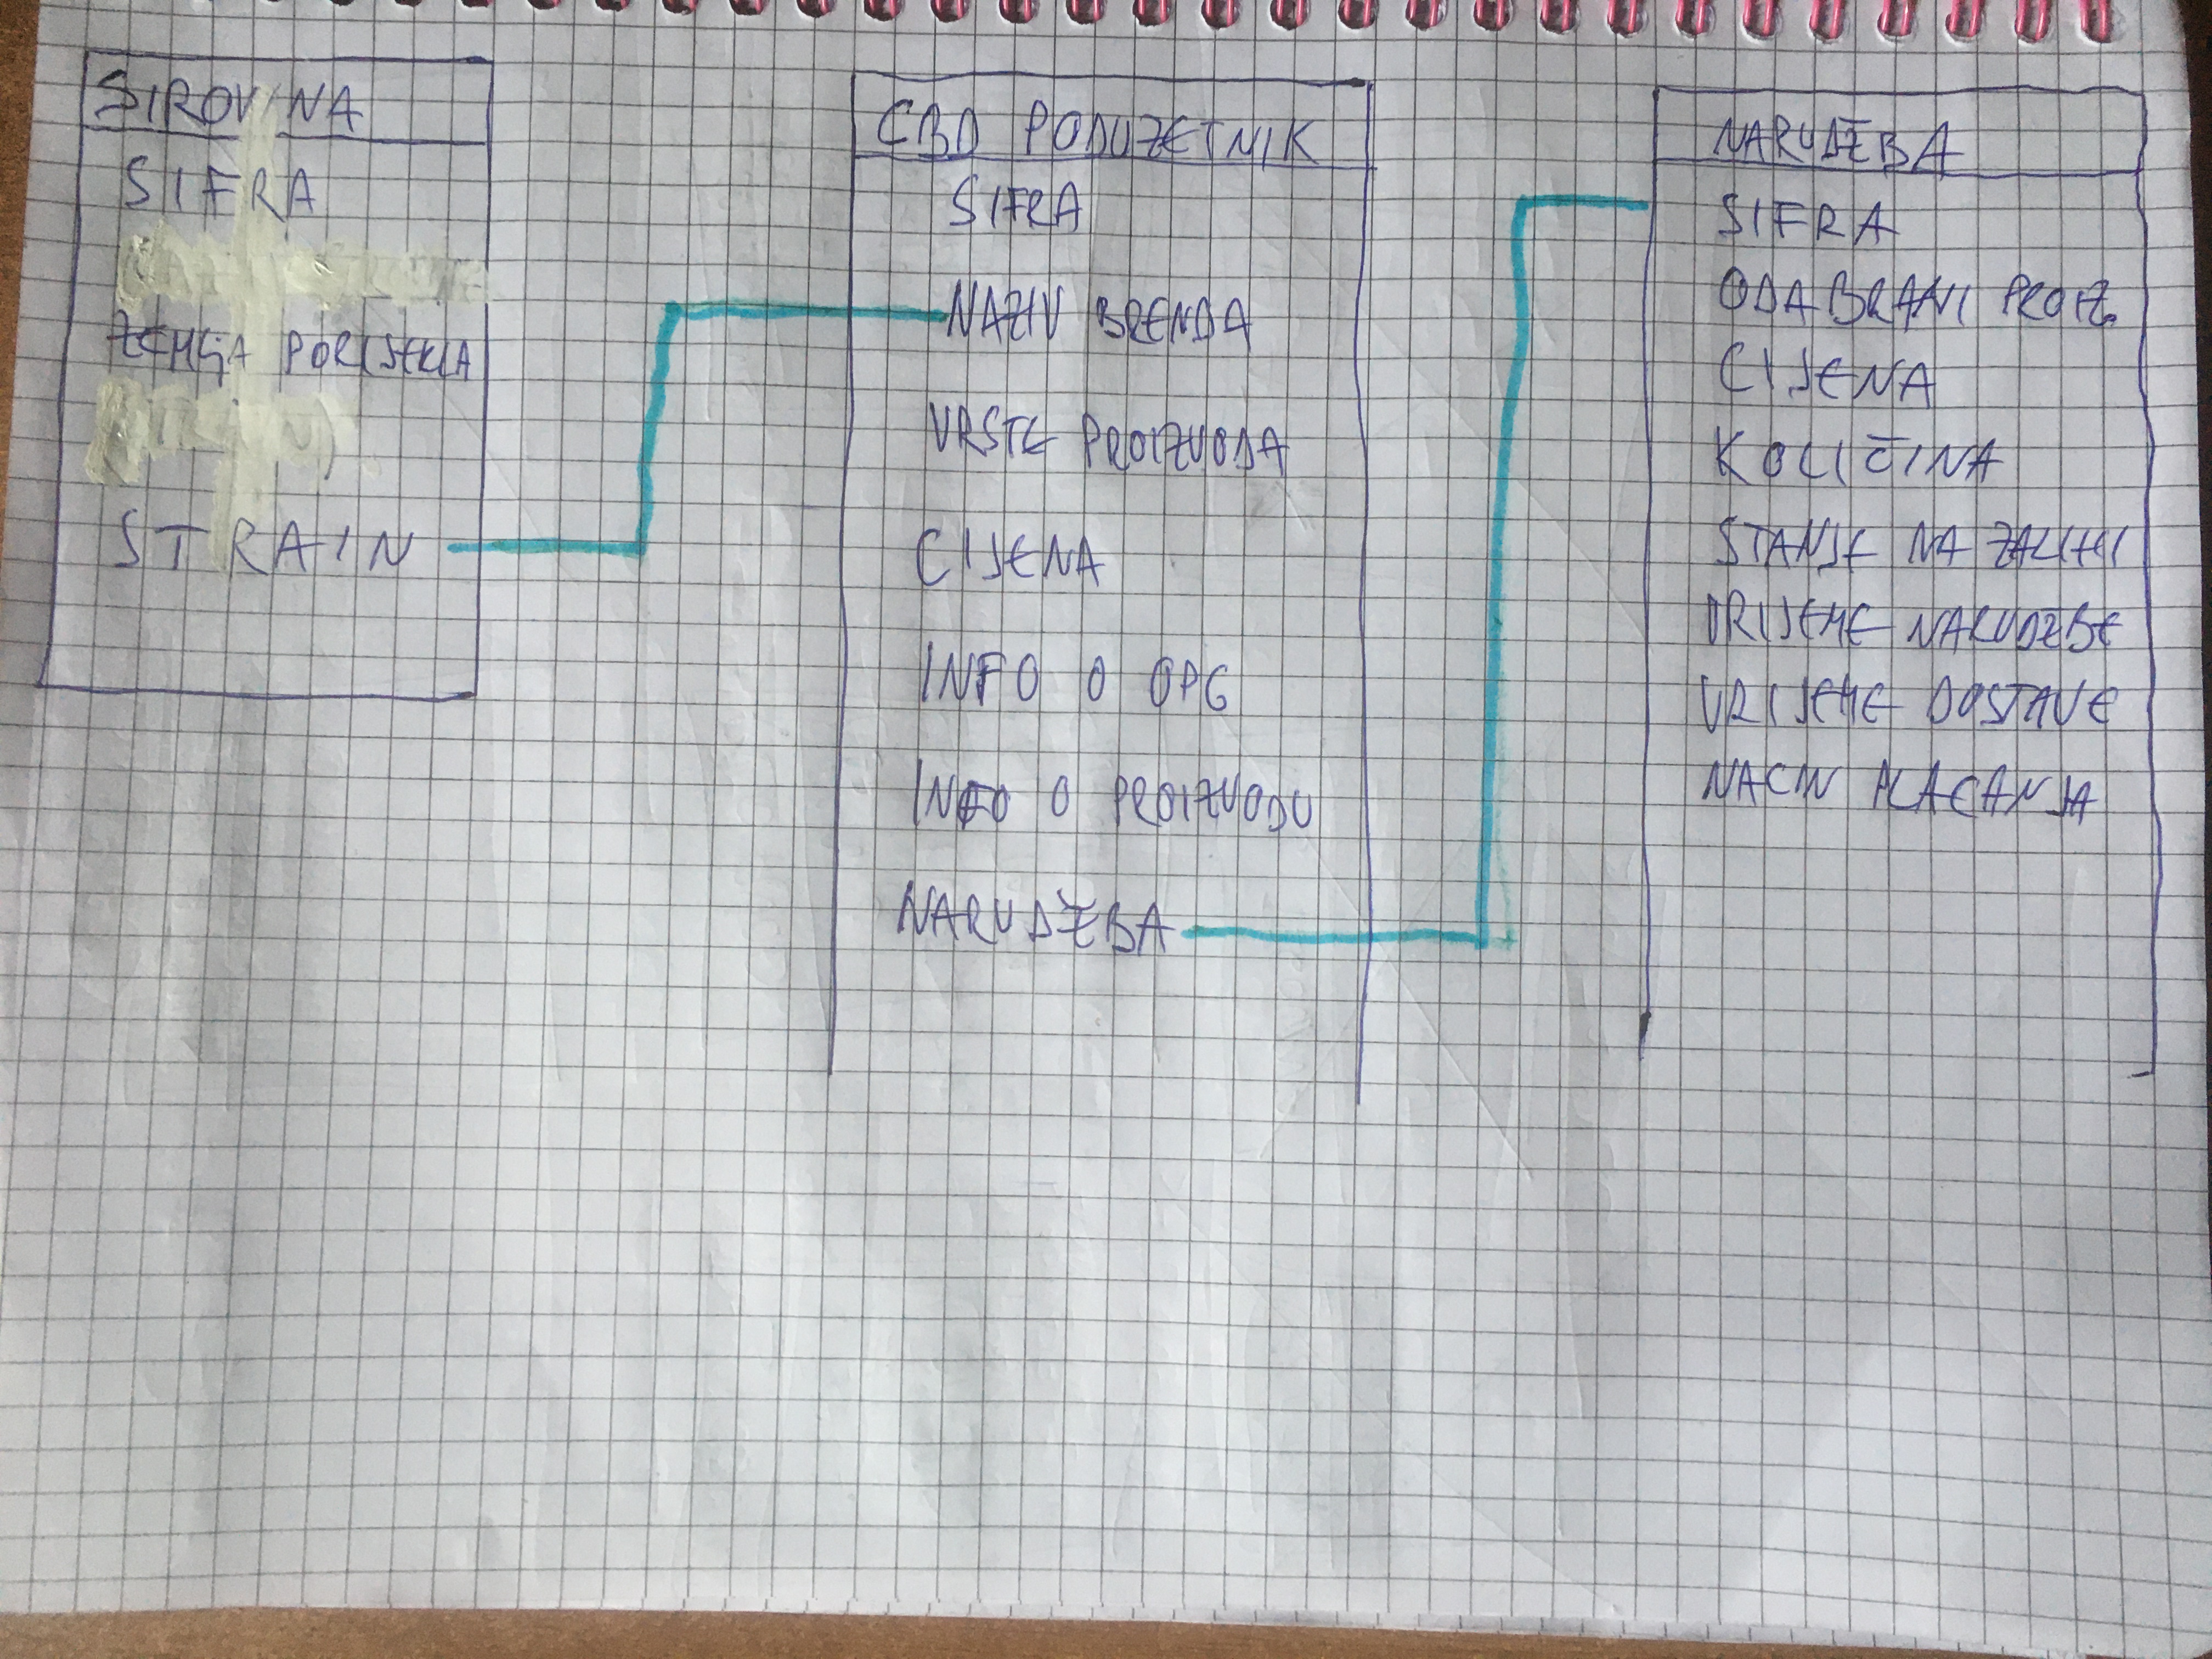 SIROVINA
SIFRA
ZEMLJA PORIJEKLA
STRAIN
CBD PODUZETNIK
SIFRA
NAZIV BRENDA
VRSTE PROIZVODA
CIJENA
INFO O OPG
INFO O PROIZVODU
NARUDŽBA
NARUDŽBA
SIFRA
ODABRANI PROIZ.
CIJENA
KOLIČINA
STANJE NA ZALIHI
VRIJEME NARUDZBE
VRIJEME DOSTAVE
NACIN PLAĆANJA